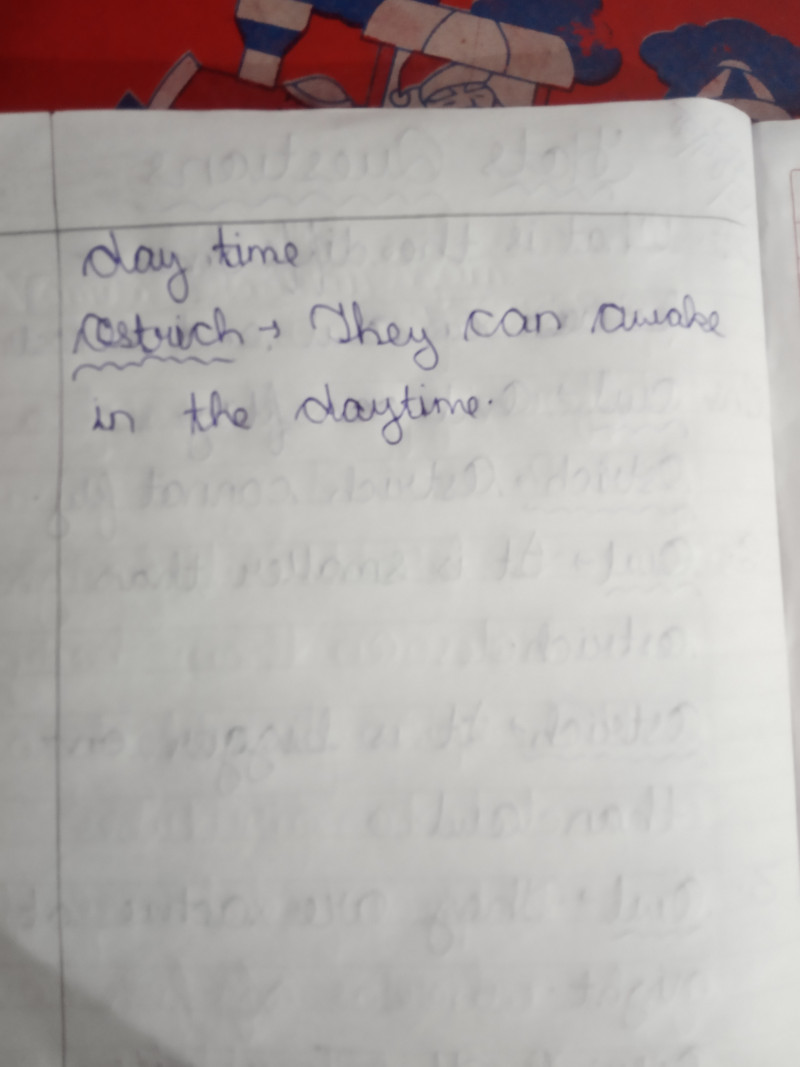 day time
Ostrich → They can awake
in the daytime.